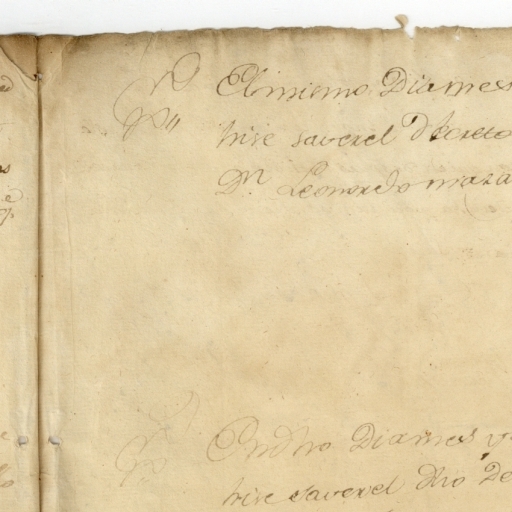 El mismo Dia mes
hise saver el Decreto
Dn Leonardo maza
En dho Dia mes y
hise saver el dho De